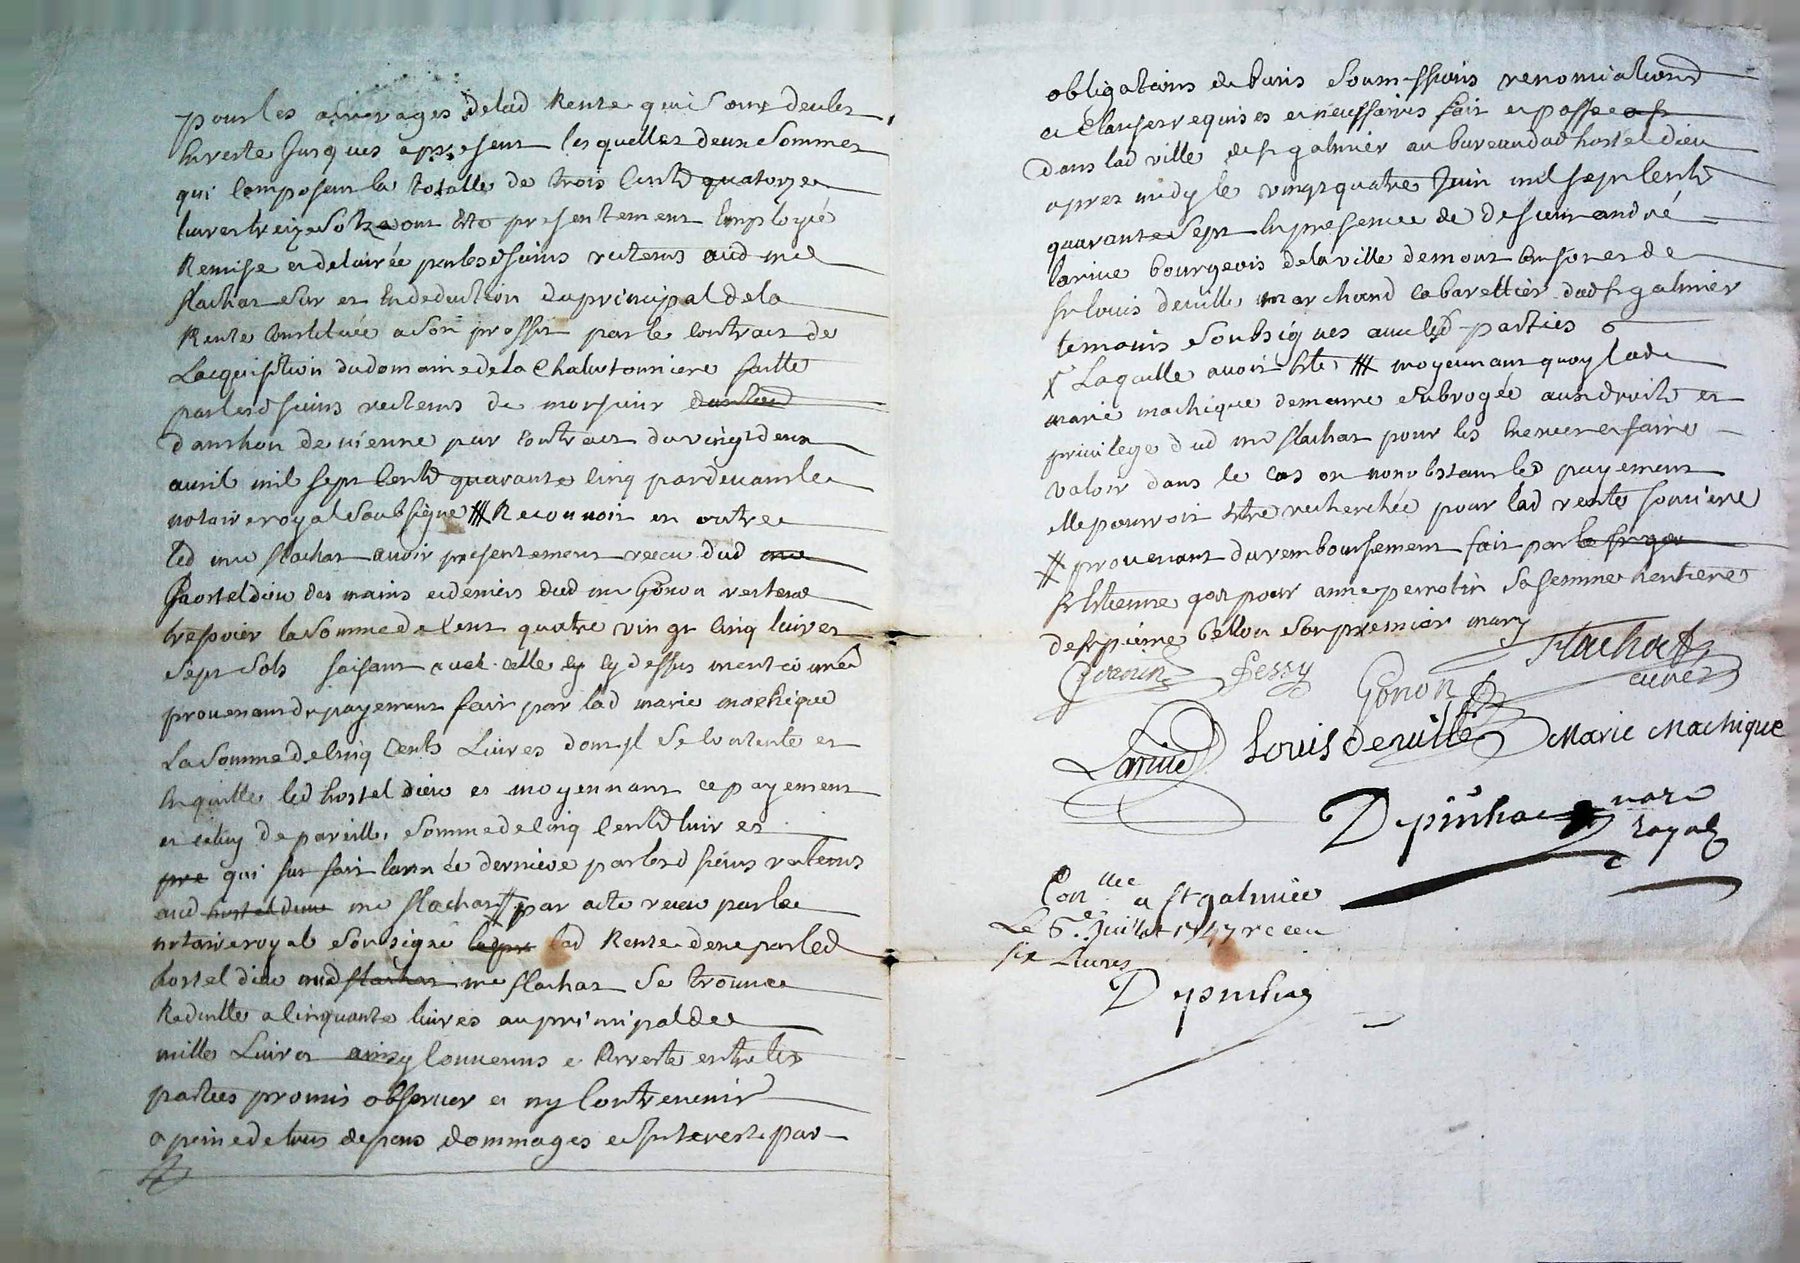 pour les arrerages de lad Rente qui sont deubs
en reste Jusques a present lesquelles deux sommes
qui composent la totalle de trois Cents quatorze
livres treize sols ont été presentement Employé
Remise et delivrée par lesd sieurs recteurs aud me
flachat sur et En deduction du principal de la
Rente Constituée a son proffit par le Contract de
Lacquisition du domaine de la Chalustonniere faitte
par lesd sieurs recteurs de monsieur
danthon de vienne par Contract du vingt deux
avril mil sept Cents quarante Cinq pardevant le
notaire royal soubsigné # Reconnoit en outre
led me flachat avoir presentement receu dud
hosteldieu des mains et deniers dud me Gonon recteur
tresorier la somme de Cent quatre vingt Cinq livres
sept sols faisant avec celle cy dessus mentionnée
provenant du payement fait par lad marie machique
La somme de Cinq Cents Livres dont il se Contente et
En quitte led hostel dieu et moyennant ce payement
et celuy de pareille somme de Cinq Cents livres
qui fut fait lannée derniere par lesd sieurs recteurs
aud hosteldieu me flachat # par acte receu par le
notaire royal soussigné lad Rente deue par led
hostel dieu aud flachat me flachat se trouve
Reduitte a Cinquante livres au principal de
mille Livres ainsy Convenus et Arresté entre les
parties promis observer et ny Contrevenir
a peine de tous depens dommages et Interests par
obligations de biens soumissions renonciations
et Clauses requises et necessaires fait et passé
dans lad ville de st galmier au bureau dud hostel dieu
apres midy le vingt quatre Juin mil sept Cents
quarante sept En presence de de sieur andré
larive bourgeois de la ville de montbrison et de
sr louis deville marchand cabarettier dud st galmier
temoins soubsignes avec lesd parties
x Laquelle avoir été # moyennant quoy lade
marie machique demeure subrogée aux droits et
privilege dud me flachat pour les Exercer et faire
valoir dans le cas ou nonobstant led payement
elle pourroit être recherchée pour lad rente fonciere
# provenant du remboursement fait par
sr Etienne got pour anne perrotin sa femme heritiere
de sr pierre bellon son premier mary
Pessy Gonon Flachat
curé
Larive Louis deville Marie Machique
Depinhac nore
Royal
Conllee a st galmier
Le 6e Juillet 1747 receu
six Livres
Depinhac